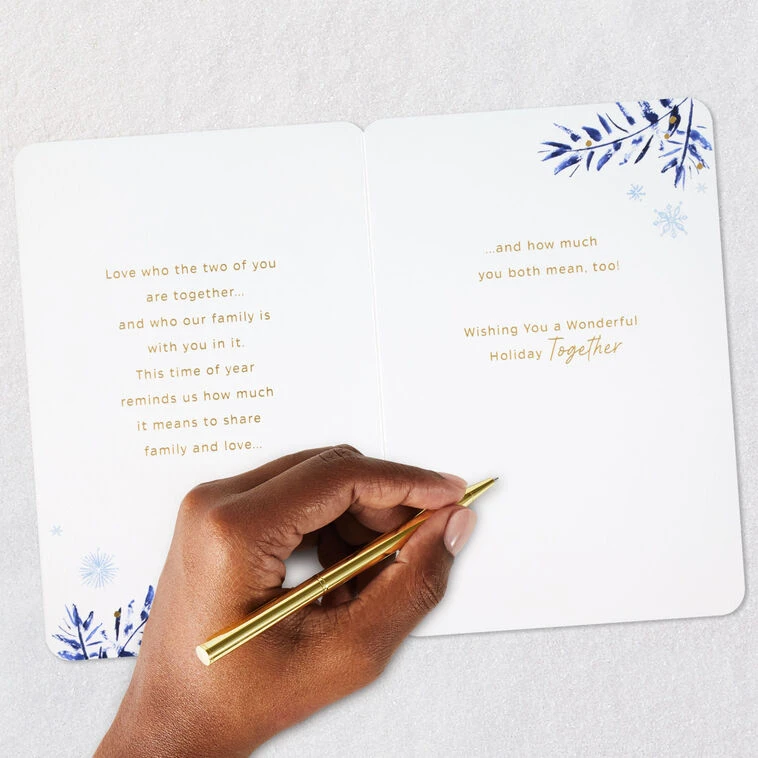 Love who the two of you
are together...
and who our family is
with you in it.
This time of year
reminds us how much
it means to share
family and love...
...and how much
you both mean, too!
Wishing You a Wonderful
Holiday Together